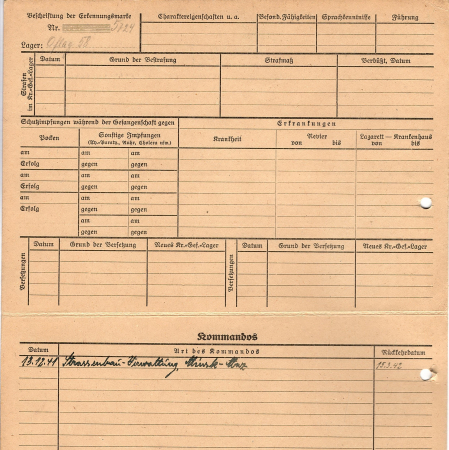 Beschriftung der Erkennungsmarke
Nr. 5124
Lager: Oflag 58
Charaktereigenschaften u. a.
Besond. Fähigkeiten
Sprachkenntnisse
Führung
Strafen im Kr.-Gef.-Lager
Datum
Grund der Bestrafung
Strafmaß
Verbüßt, Datum
Schutzimpfungen während der Gefangenschaft gegen
Erkrankungen
Pocken
Sonstige Impfungen
(Ty.-Paraty., Ruhr, Cholera usw.)
Krankheit
Revier
von bis
Lazarett — Krankenhaus
von bis
am am am
Erfolg gegen gegen
am am am
Erfolg gegen gegen
am am am
Erfolg gegen gegen
am am
gegen gegen
Versetzungen
Datum
Grund der Versetzung
Neues Kr.-Gef.-Lager
Versetzungen
Datum
Grund der Versetzung
Neues Kr.-Gef.-Lager
Kommandos
Datum
Art des Kommandos
Rückkehrdatum
13.12.41 Strassenbau-Verwaltung, Minsk-Maz.